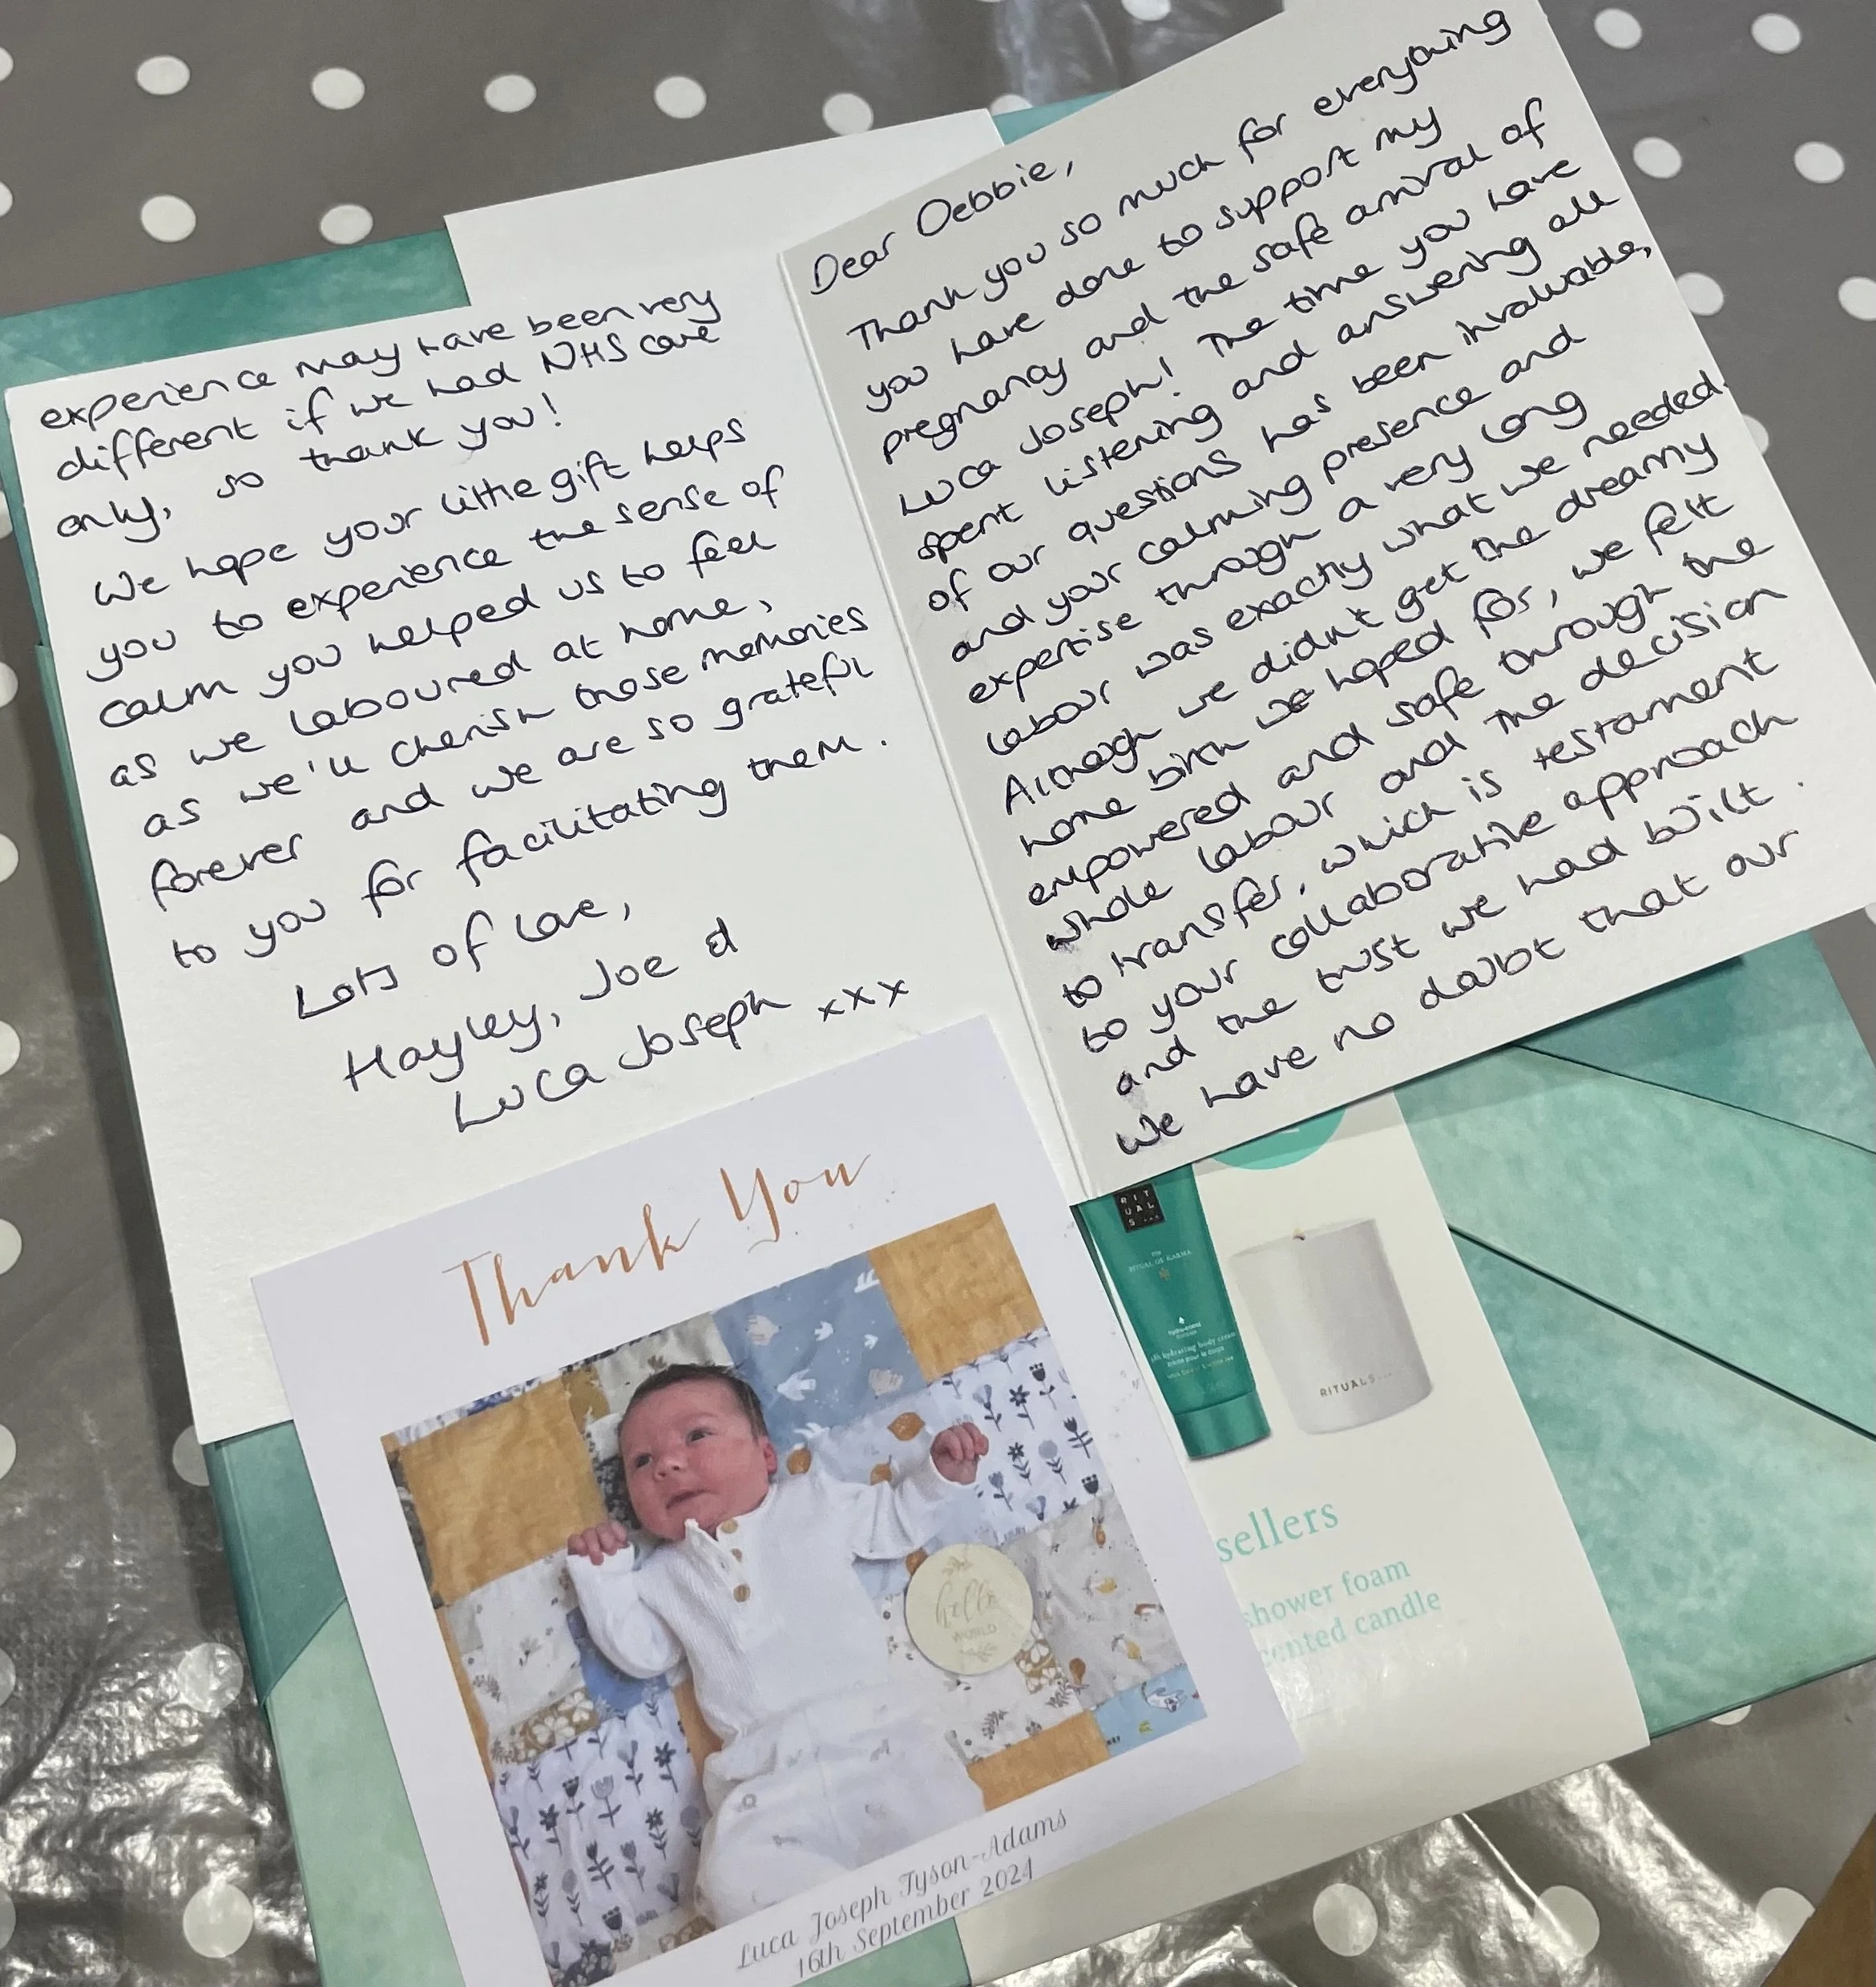 Dear Debbie,
Thank you so much for everything
you have done to support my
pregnancy and the safe arrival of
Luca Joseph! The time you have
spent listening and answering all
of our questions has been invaluable,
and your calming presence and
expertise through a very long
labour was exactly what we needed.
Although we didn't get the dreamy
home birth we hoped for, we felt
empowered and safe through the
whole labour and the decision
to transfer, which is testament
to your collaborative approach
and the trust we had built.
We have no doubt that our
experience may have been very
different if we had NHS care
only, so thank you!
We hope your little gift helps
you to experience the sense of
calm you helped us to feel
as we laboured at home,
as we'll cherish those memories
forever and we are so grateful
to you for facilitating them.
Lots of love,
Hayley, Joe &
Luca Joseph xxx
Thank You
hello
WORLD
Luca Joseph Tyson-Adams
16th September 2024
RIT
UAL
S...
THE
RITUAL OF KARMA
RITUALS...
sellers
shower foam
cented candle